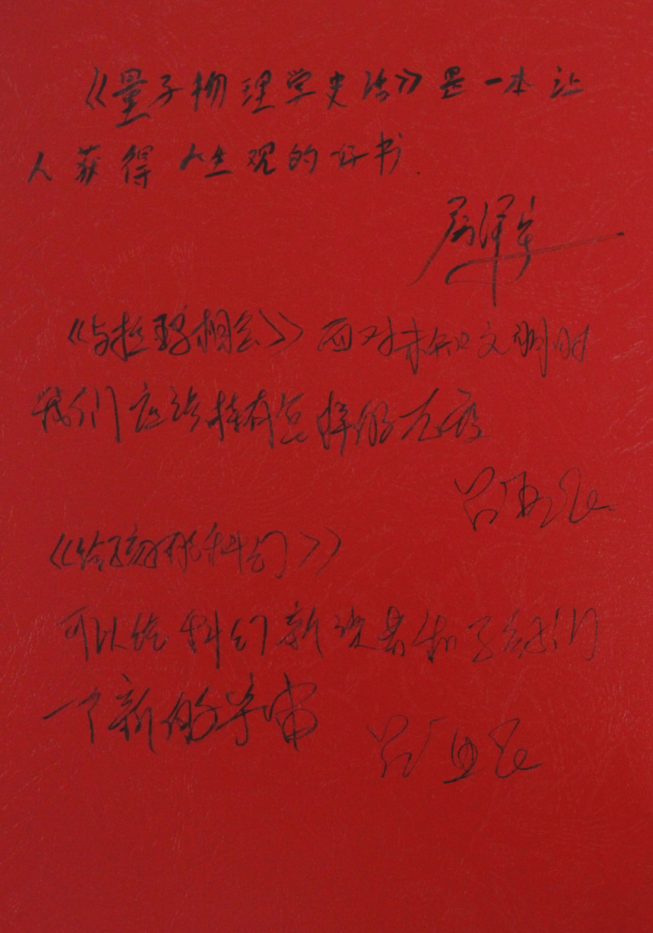 《量子物理学史话》是一本让
人获得人生观的好书
《与拉玛相会》面对未知文明时
我们应该持有怎样的态度
《给孩子的科幻》
可以给科幻新读者和孩子们
一个新的宇宙